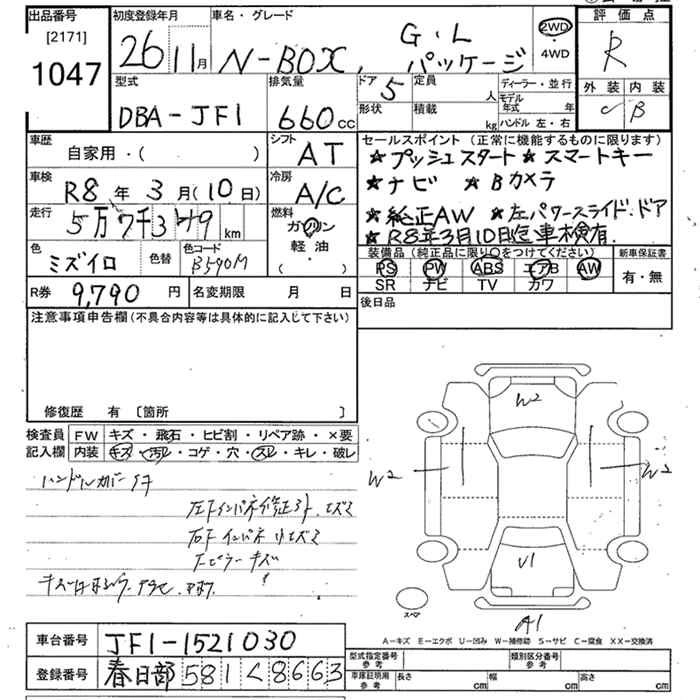 出品番号 初度登録年月 車名・グレード 評価点
[2171] 1047 26 11月 N-BOX, G・L パッケージ 2WD ・ 4WD R
外装 内装
B
型式 排気量 ドア 5 定員 人 ディーラー・並行
DBA-JF1 660cc 形状 積載 kg モデル年式 年
ハンドル 左・右
車歴 自家用・( ) シフト AT
セールスポイント(正常に機能するものに限ります)
★プッシュスタート★スマートキー
★ナビ ★Bカメラ
★純正AW ★左パワースライド.ドア
★R8年3月10日迄車検有.
車検 R8年3月(10日) 冷房 A/C
走行 5万7千3 9 km 燃料 ガソリン
軽油
( )
色 ミズイロ 色替 色コード B590M
装備品(純正品に限り○をつけてください) 新車保証書
PS PW ABS エアB AW 有・無
SR ナビ TV カワ
R券 9,790円 名変期限 月 日
後日品
注意事項申告欄(不具合内容等は具体的に記入して下さい)
修復歴 有 [箇所 ]
検査員 FW キズ・飛石・ヒビ割・リペア跡・×要
記入欄 内装 キズ・汚レ・コゲ・穴・スレ・キレ・破レ
ハンドルカバー付
左Fインパネ修正跡、ヒズミ
右Fインパネ ヒズミ
Fピラーキズ
W2
W2 W2
V1
スペア
A1
A-キズ E-エクボ U-凹み W-補修跡 S-サビ C-腐食 XX-交換済
車台番号 JF1-1521030
型式指定番号 参考 類別区分番号 参考
登録番号 春日部 581 く 8663
車庫証明用 参考 長さ cm 幅 cm 高さ cm